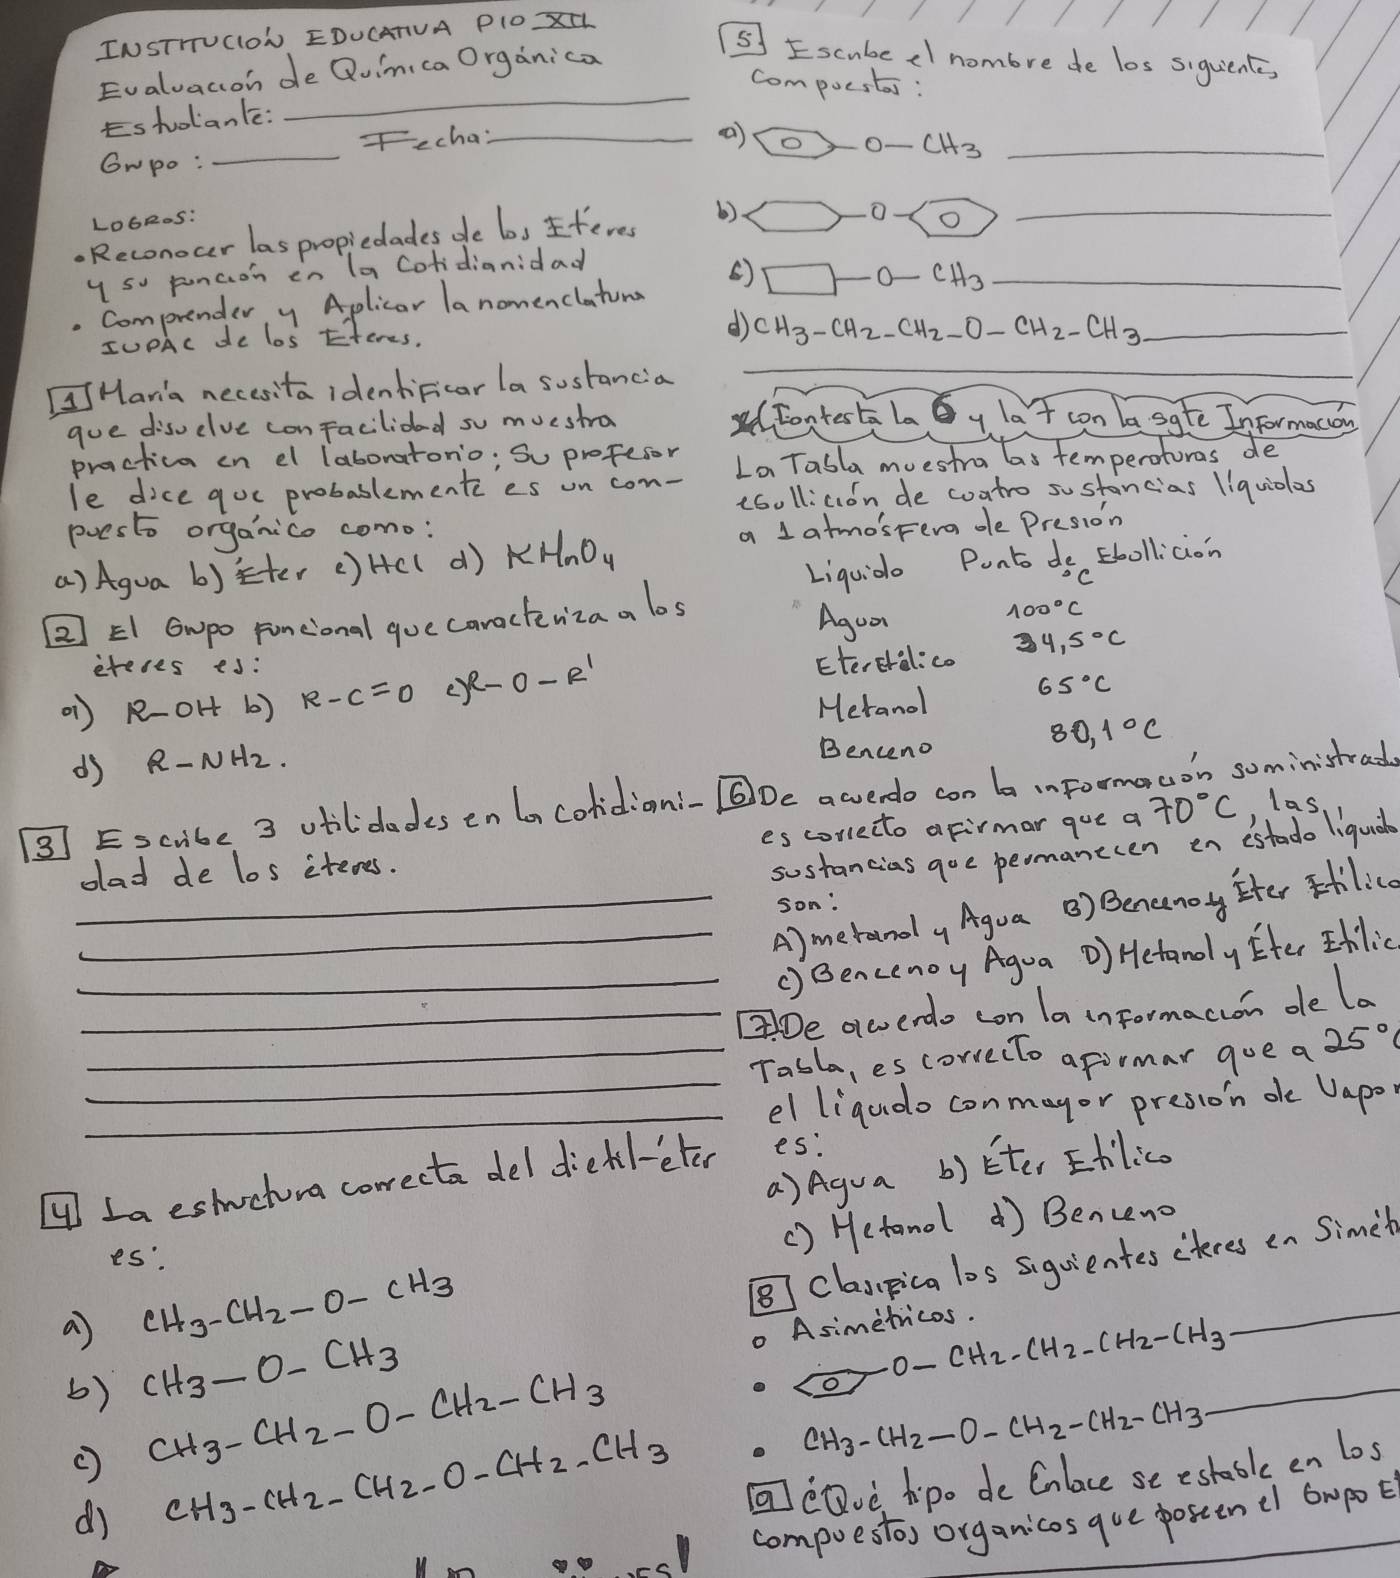 INSTITUCIÓN EDUCATIVA PIO XII
Evaluación de Química Orgánica
Estudiante:
Grupo: Fecha:
LOGROS:
• Reconocer las propiedades de los Éteres
y su función en la cotidianidad
• Comprender y Aplicar la nomenclatura
IUPAC de los Éteres.
1 María necesita identificar la sustancia
que disuelve con facilidad su muestra
practica en el laboratorio; Su profesor
le dice que probablemente es un com-
puesto orgánico como:
a) Agua b) Éter c) HCl d) KMnO4
2 El Grupo funcional que caracteriza a los
éteres es:
a) R-OH b) R-C=O c) R-O-R'
d) R-NH2.
3 Escribe 3 utilidades en la cotidiani-
dad de los éteres.
4 La estructura correcta del dietil-éter
es:
a) CH3-CH2-O-CH3
b) CH3-O-CH3
c) CH3-CH2-O-CH2-CH3
d) CH3-CH2-CH2-O-CH2-CH3
5 Escribe el nombre de los siguientes
compuestos:
a) O-CH3
b) -O-
c) -O-CH3
d) CH3-CH2-CH2-O-CH2-CH3
Contesta la 6 y la 7 con la sgte Información
La Tabla muestra las temperaturas de
ebullición de cuatro sustancias líquidas
a 1 atmósfera de Presión
Liquido Punto de Ebullición
°C
Agua 100°C
Eter Etílico 34,5°C
Metanol 65°C
Benceno 80,1°C
6 De acuerdo con la información suministrada
es correcto afirmar que a 70°C, las
sustancias que permanecen en estado líquido
son:
A) metanol y Agua B) Benceno y Éter Etílico
C) Benceno y Agua D) Metanol y Éter Etílic
7. De acuerdo con la información de la
Tabla, es correcto afirmar que a 25°C
el líquido con mayor presión de Vapor
es:
a) Agua b) Éter Etílico
c) Metanol d) Benceno
8 Clasifica los siguientes éteres en Simét
o Asimétricos.
• O-CH2-CH2-CH2-CH3
• CH3-CH2-O-CH2-CH2-CH3
9 ¿Qué tipo de Enlace se estable en los
compuestos orgánicos que poseen el Grupo Et